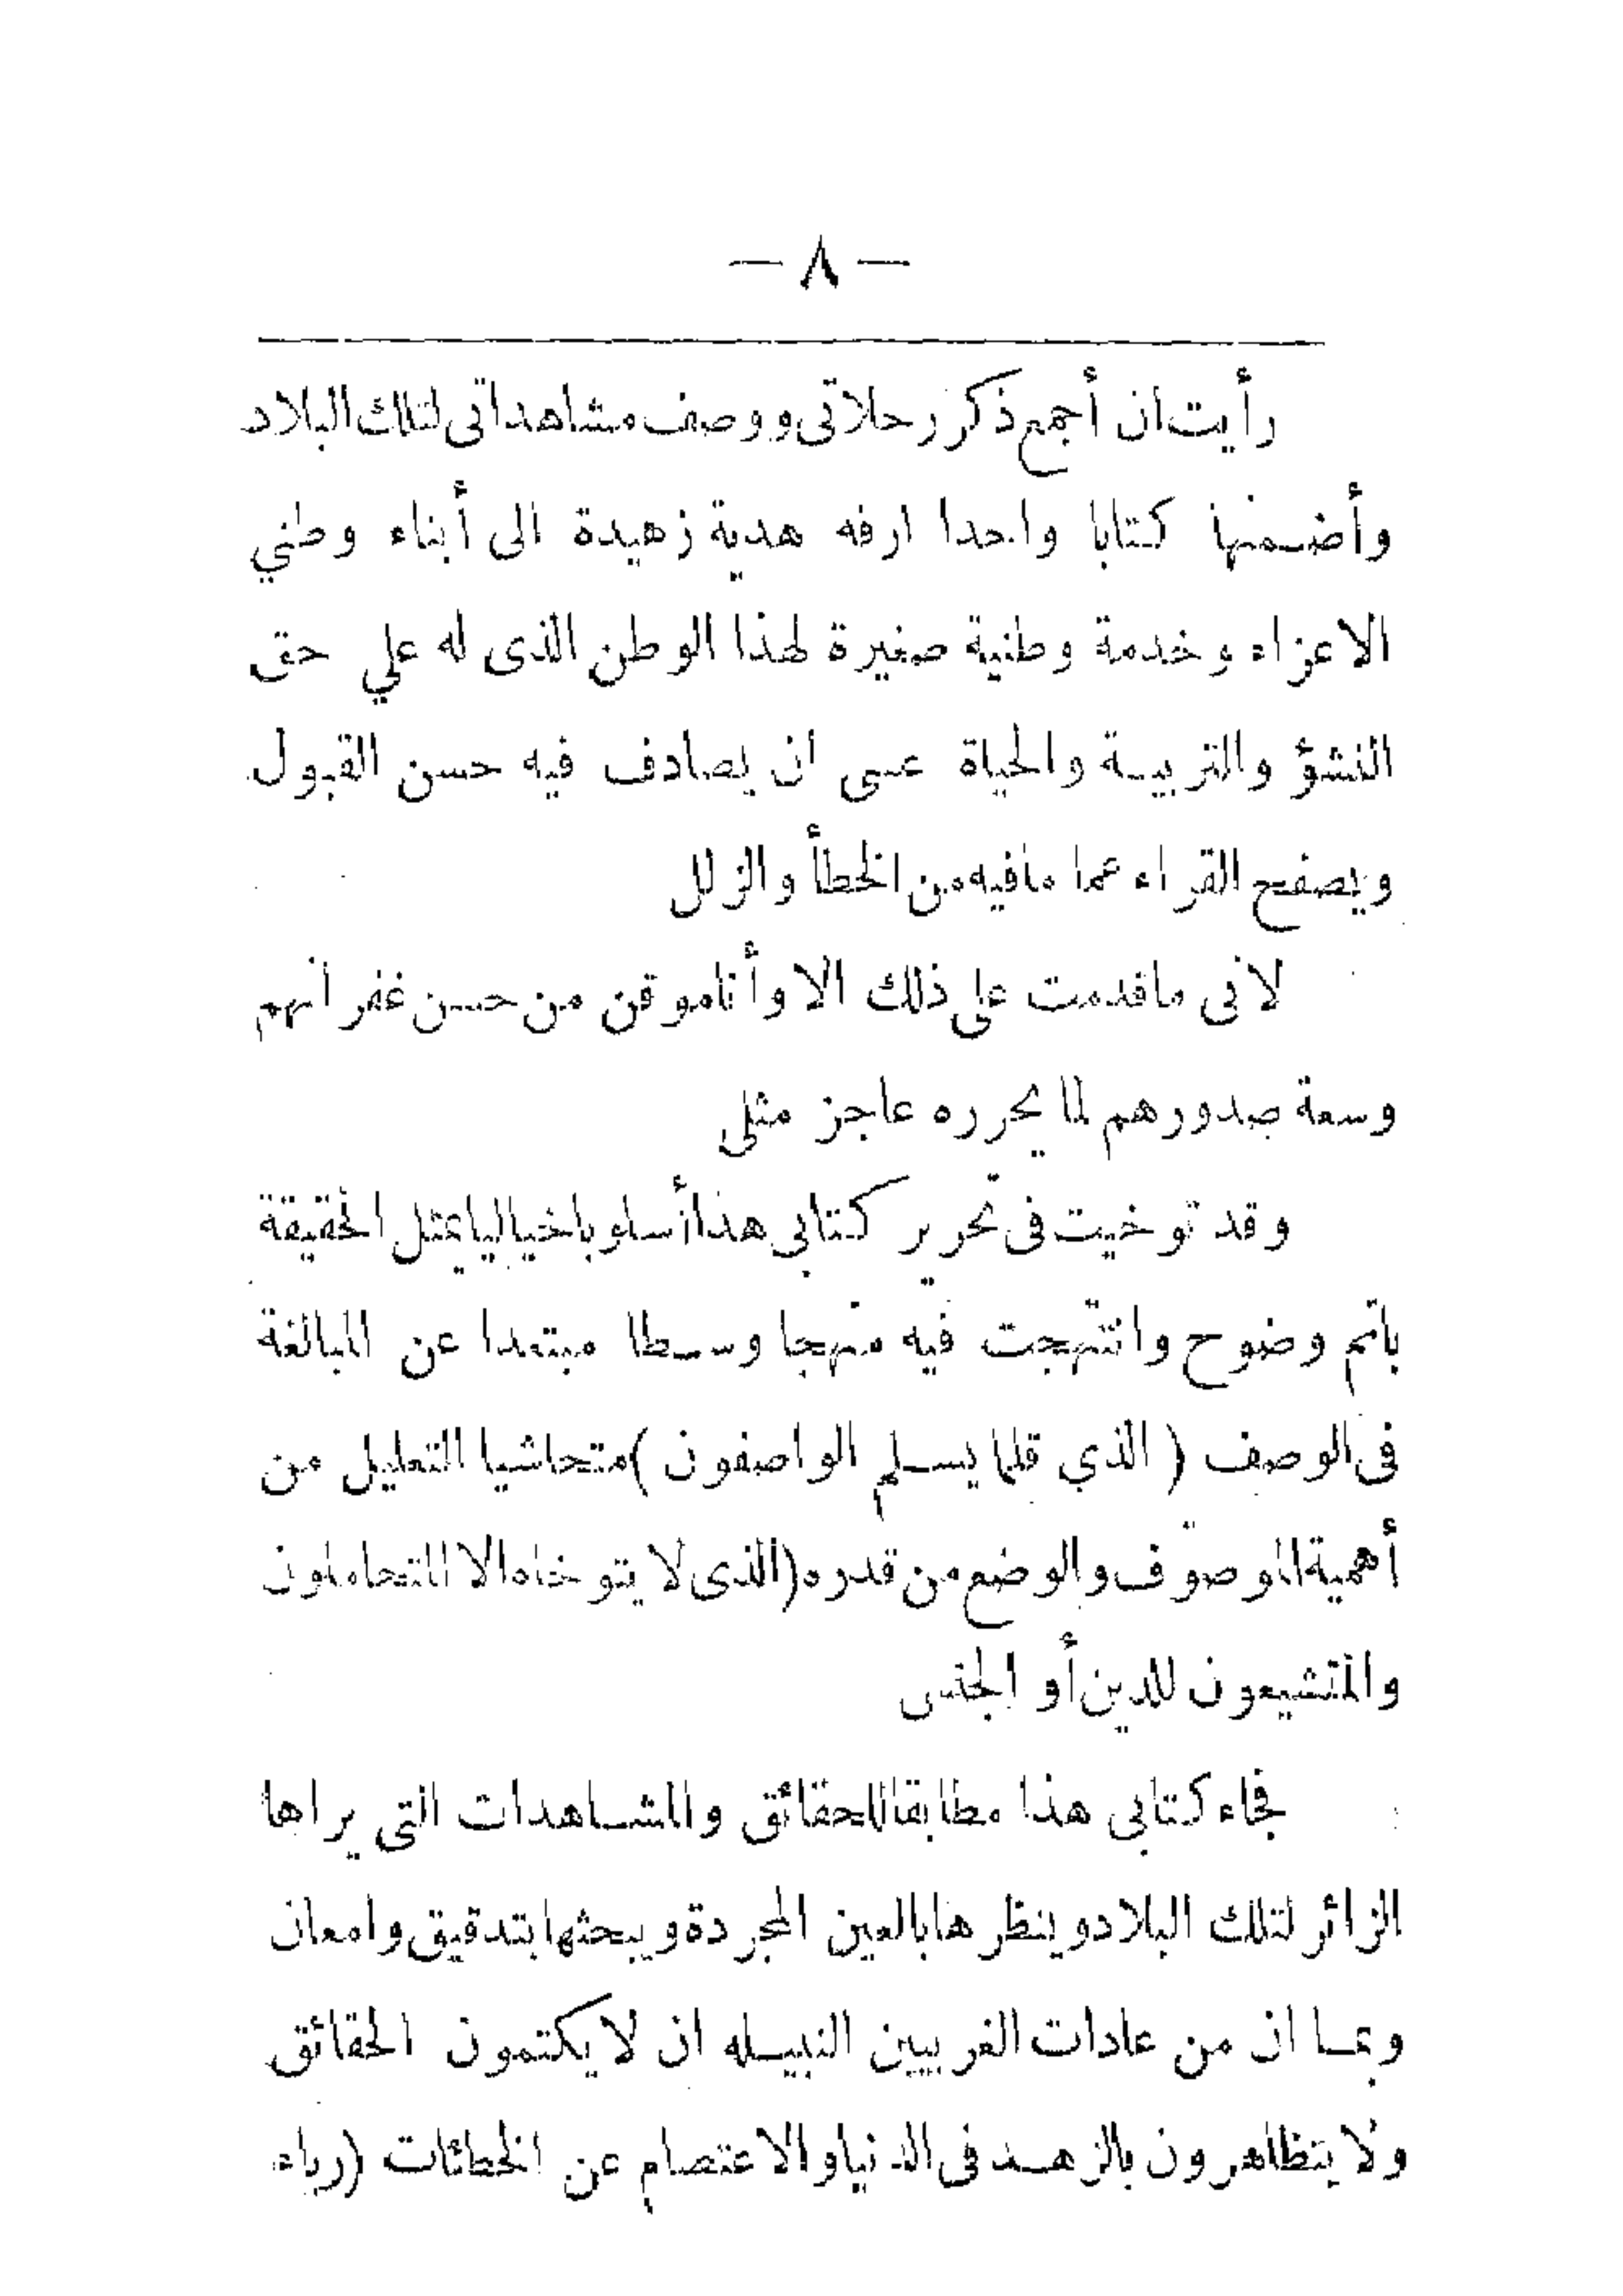 — ٨ —
رأيت ان أجمع ذكر رحلاتى ووصف مشاهداتى لتلك البلاد
وأضمنها كتابا واحدا ارفه هدية زهيدة الى أبناء وطني
الاعزاء وخدمة وطنية صغيرة لهذا الوطن الذى له علي حق
النشؤ والتربية والحياة عسى ان يصادف فيه حسن القبول
ويصفح القراء عما مافيه من الخطأ والزلل
لانى ماقدمت على ذلك الا وأنا موقن من حسن غفرانهم
وسعة صدورهم لما يحرره عاجز مثلى
وقد توخيت فى تحرير كتابى هذا أسلوبا خياليا يمثل الحقيقة
باتم وضوح وانتهجت فيه منهجا وسطا مبتعدا عن المبالغة
فى الوصف ( الذي قلما يسلم الواصفون ) متحاشيا التعليل من
أهمية الموصوف والوضع من قدره ( الذى لا يتوخاه الا المتحاملون
والمتشيعون للدين أو الجنس
فجاء كتابى هذا مطابقا للحقائق والمشاهدات التى يراها
الزائر لتلك البلاد وينظرها بالعين المجردة ويبحثها بتدقيق وامعان
وبما ان من عادات الغربيين النبيله ان لا يكتمون الحقائق
ولا يتظاهرون بالزهد فى الدنيا والاعتصام عن الخطائات (رياء